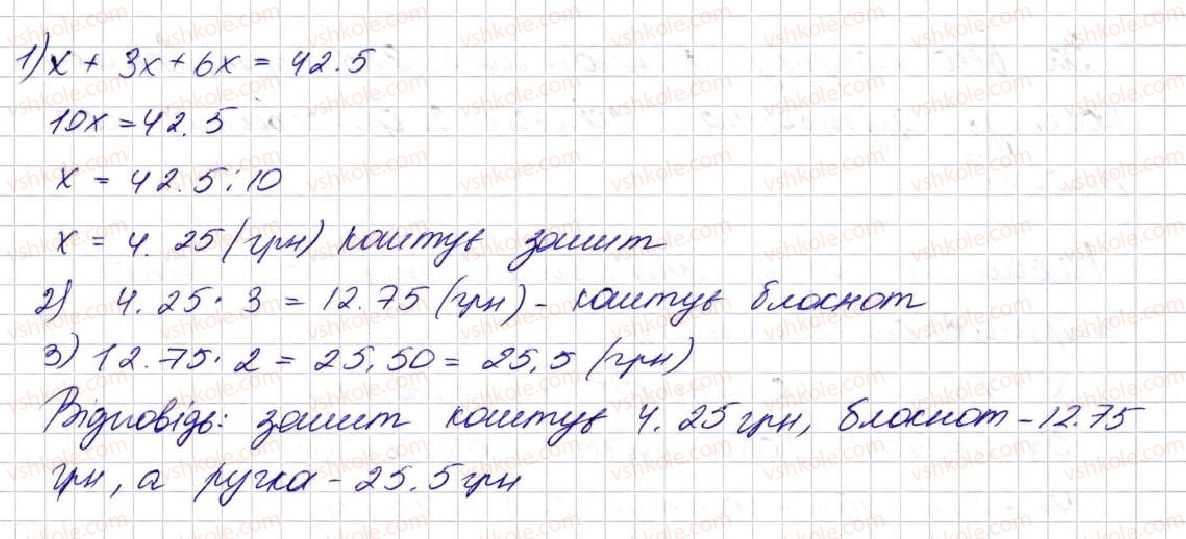 1) x + 3x + 6x = 42.5
10x = 42.5
x = 42.5 : 10
x = 4.25 (грн) коштує зошит
2) 4.25 · 3 = 12.75 (грн) - коштує блокнот
3) 12.75 · 2 = 25,50 = 25,5 (грн)
Відповідь: зошит коштує 4.25 грн, блокнот - 12.75
грн, а ручка - 25.5 грн